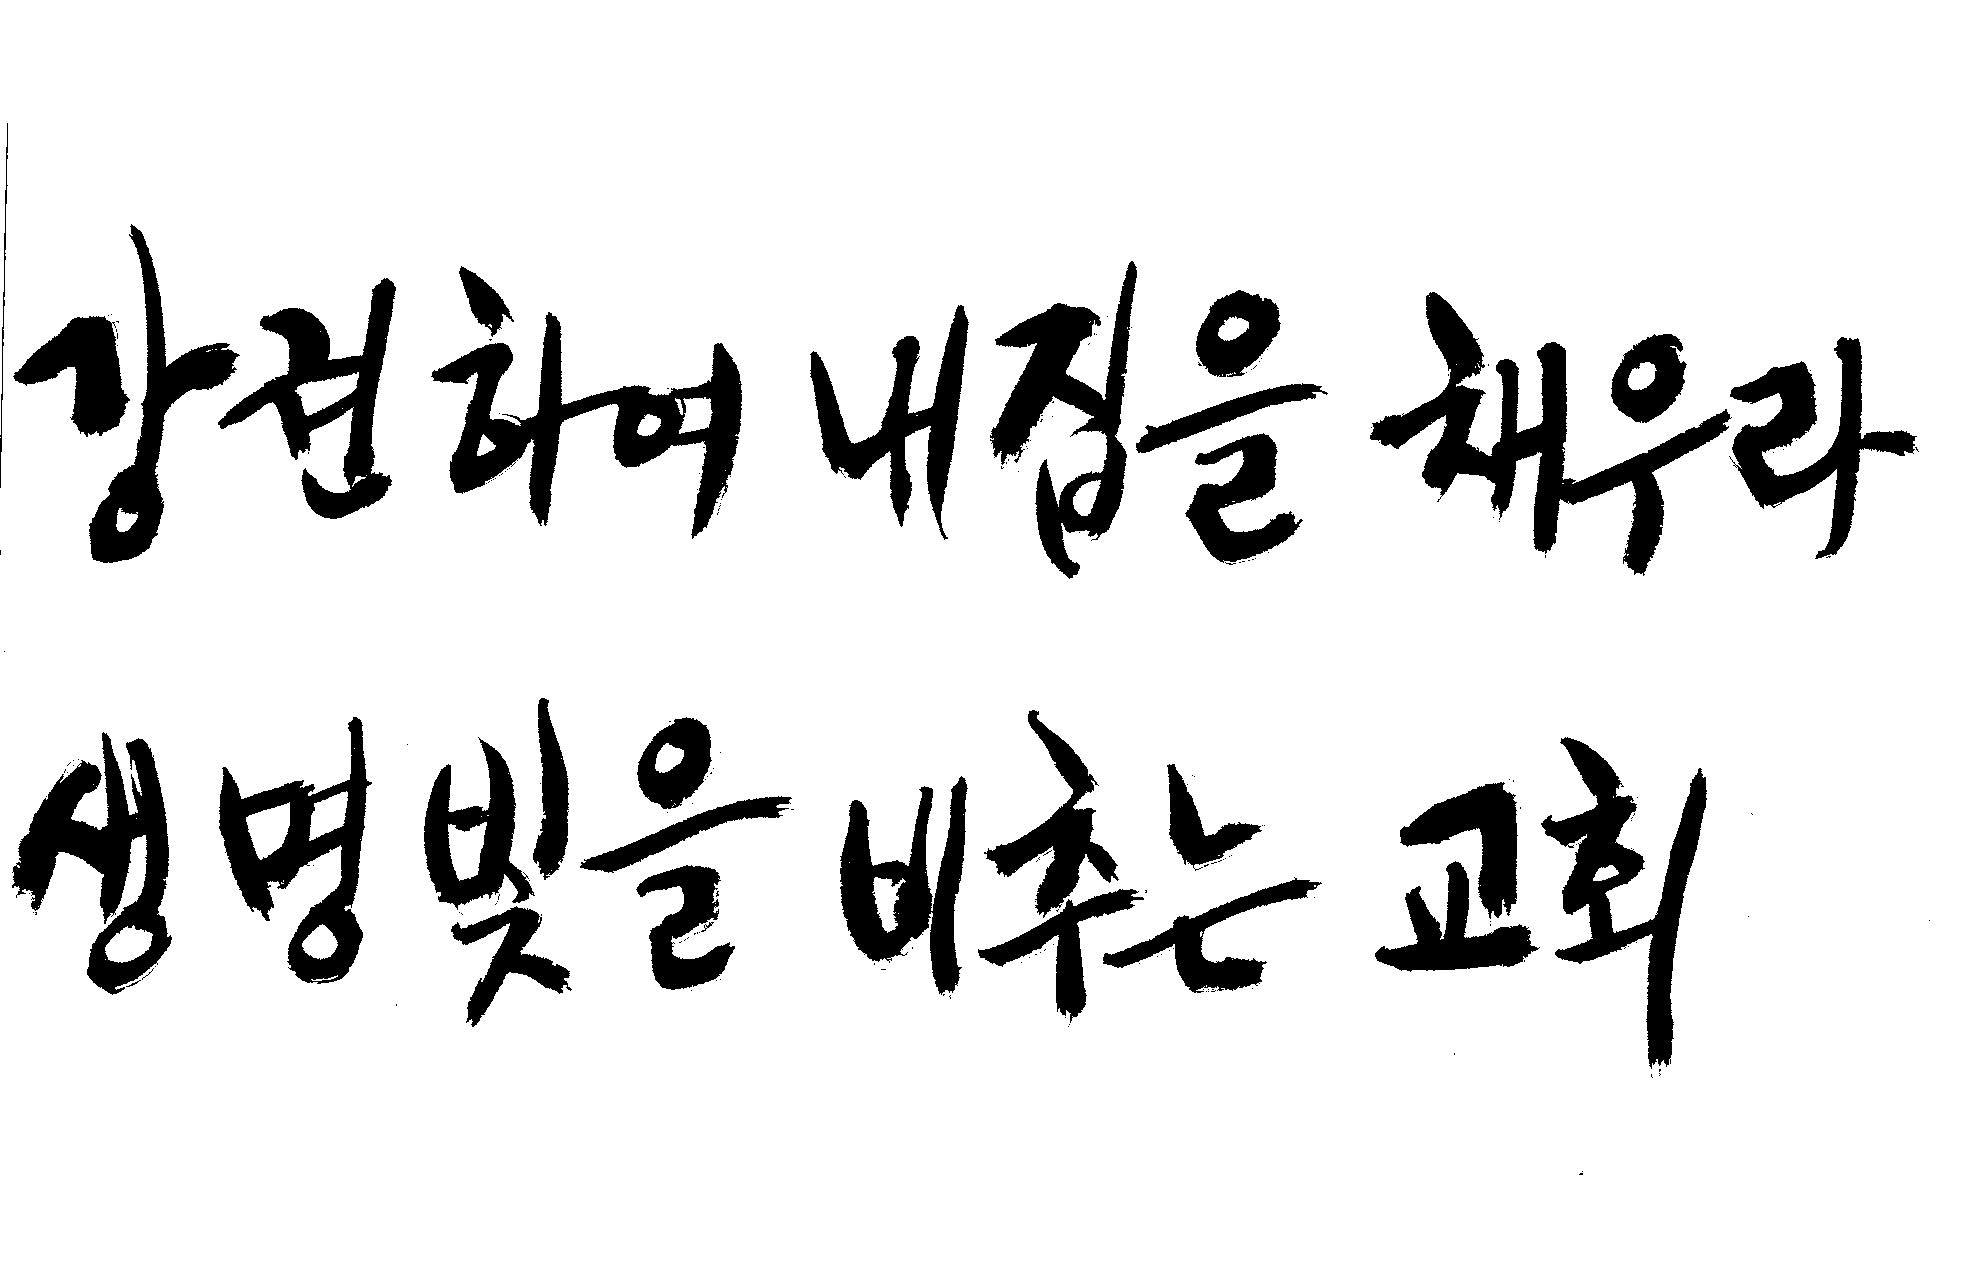 강권하여 내집을 채우라
생명빛을 비추는 교회